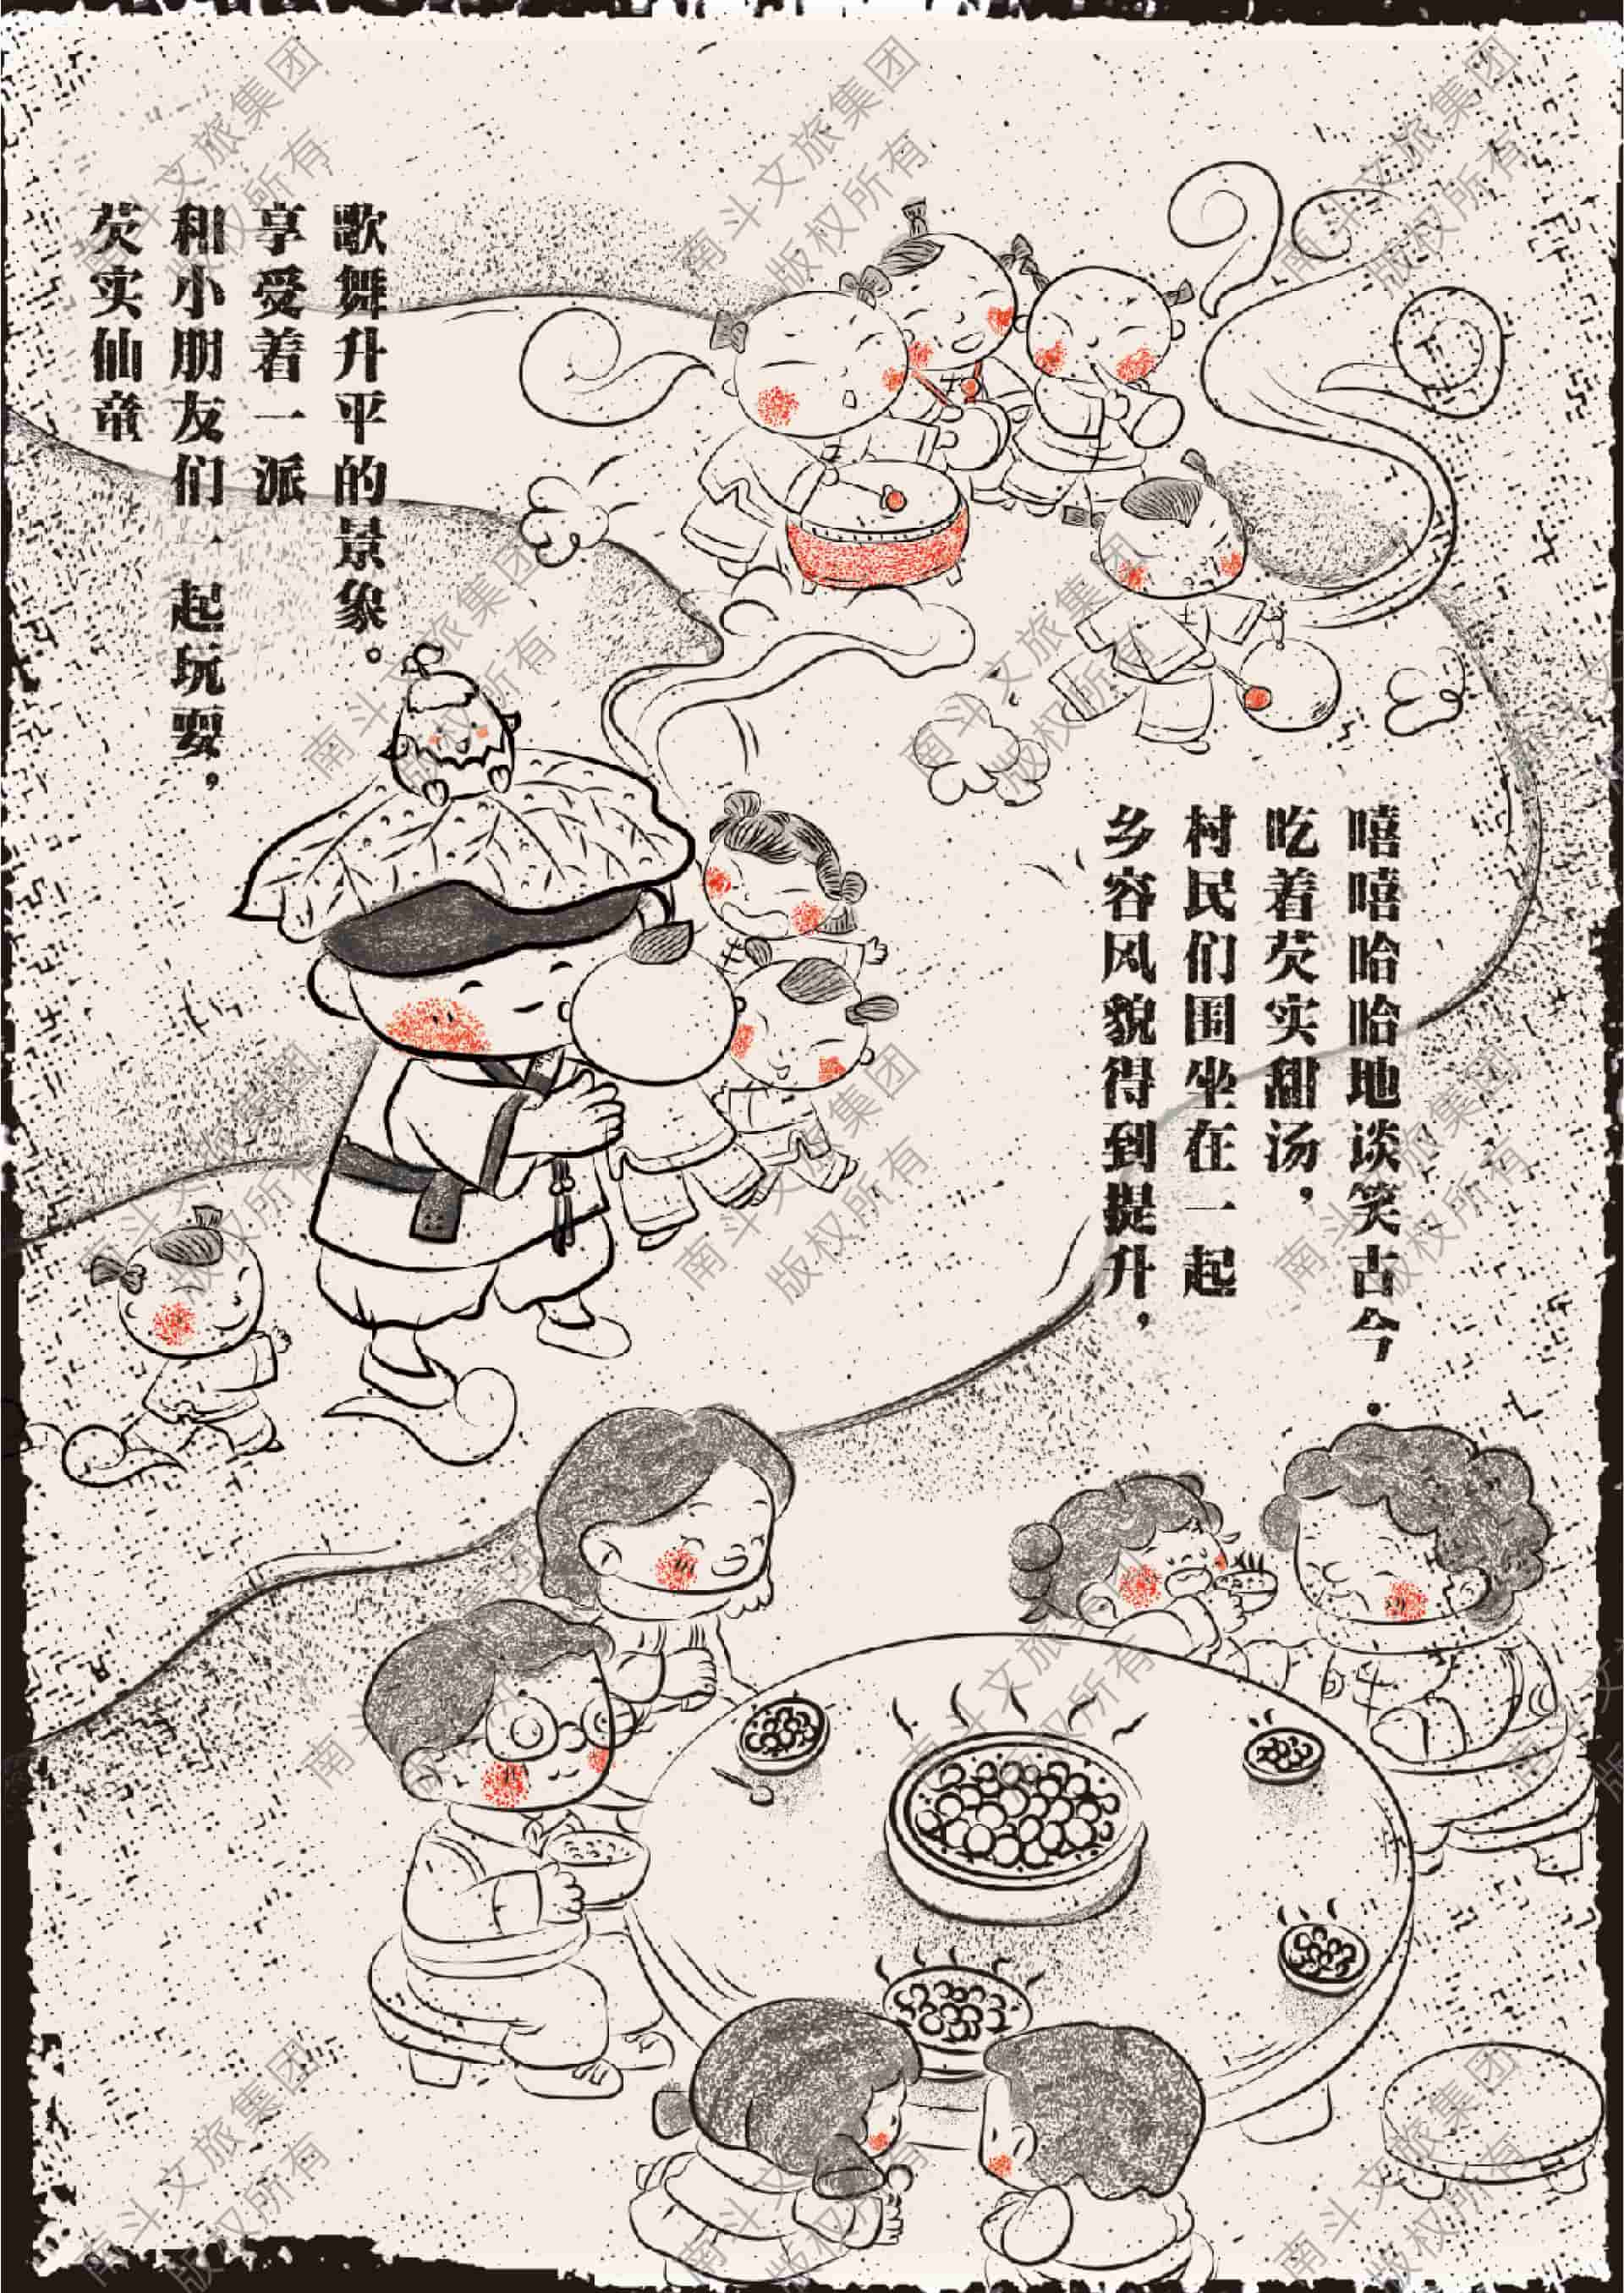 芡实仙童
和小朋友们一起玩耍，
享受着一派
歌舞升平的景象。
乡容风貌得到提升，
村民们围坐在一起
吃着芡实甜汤，
嘻嘻哈哈地谈笑古今.
南斗文旅集团
版权所有